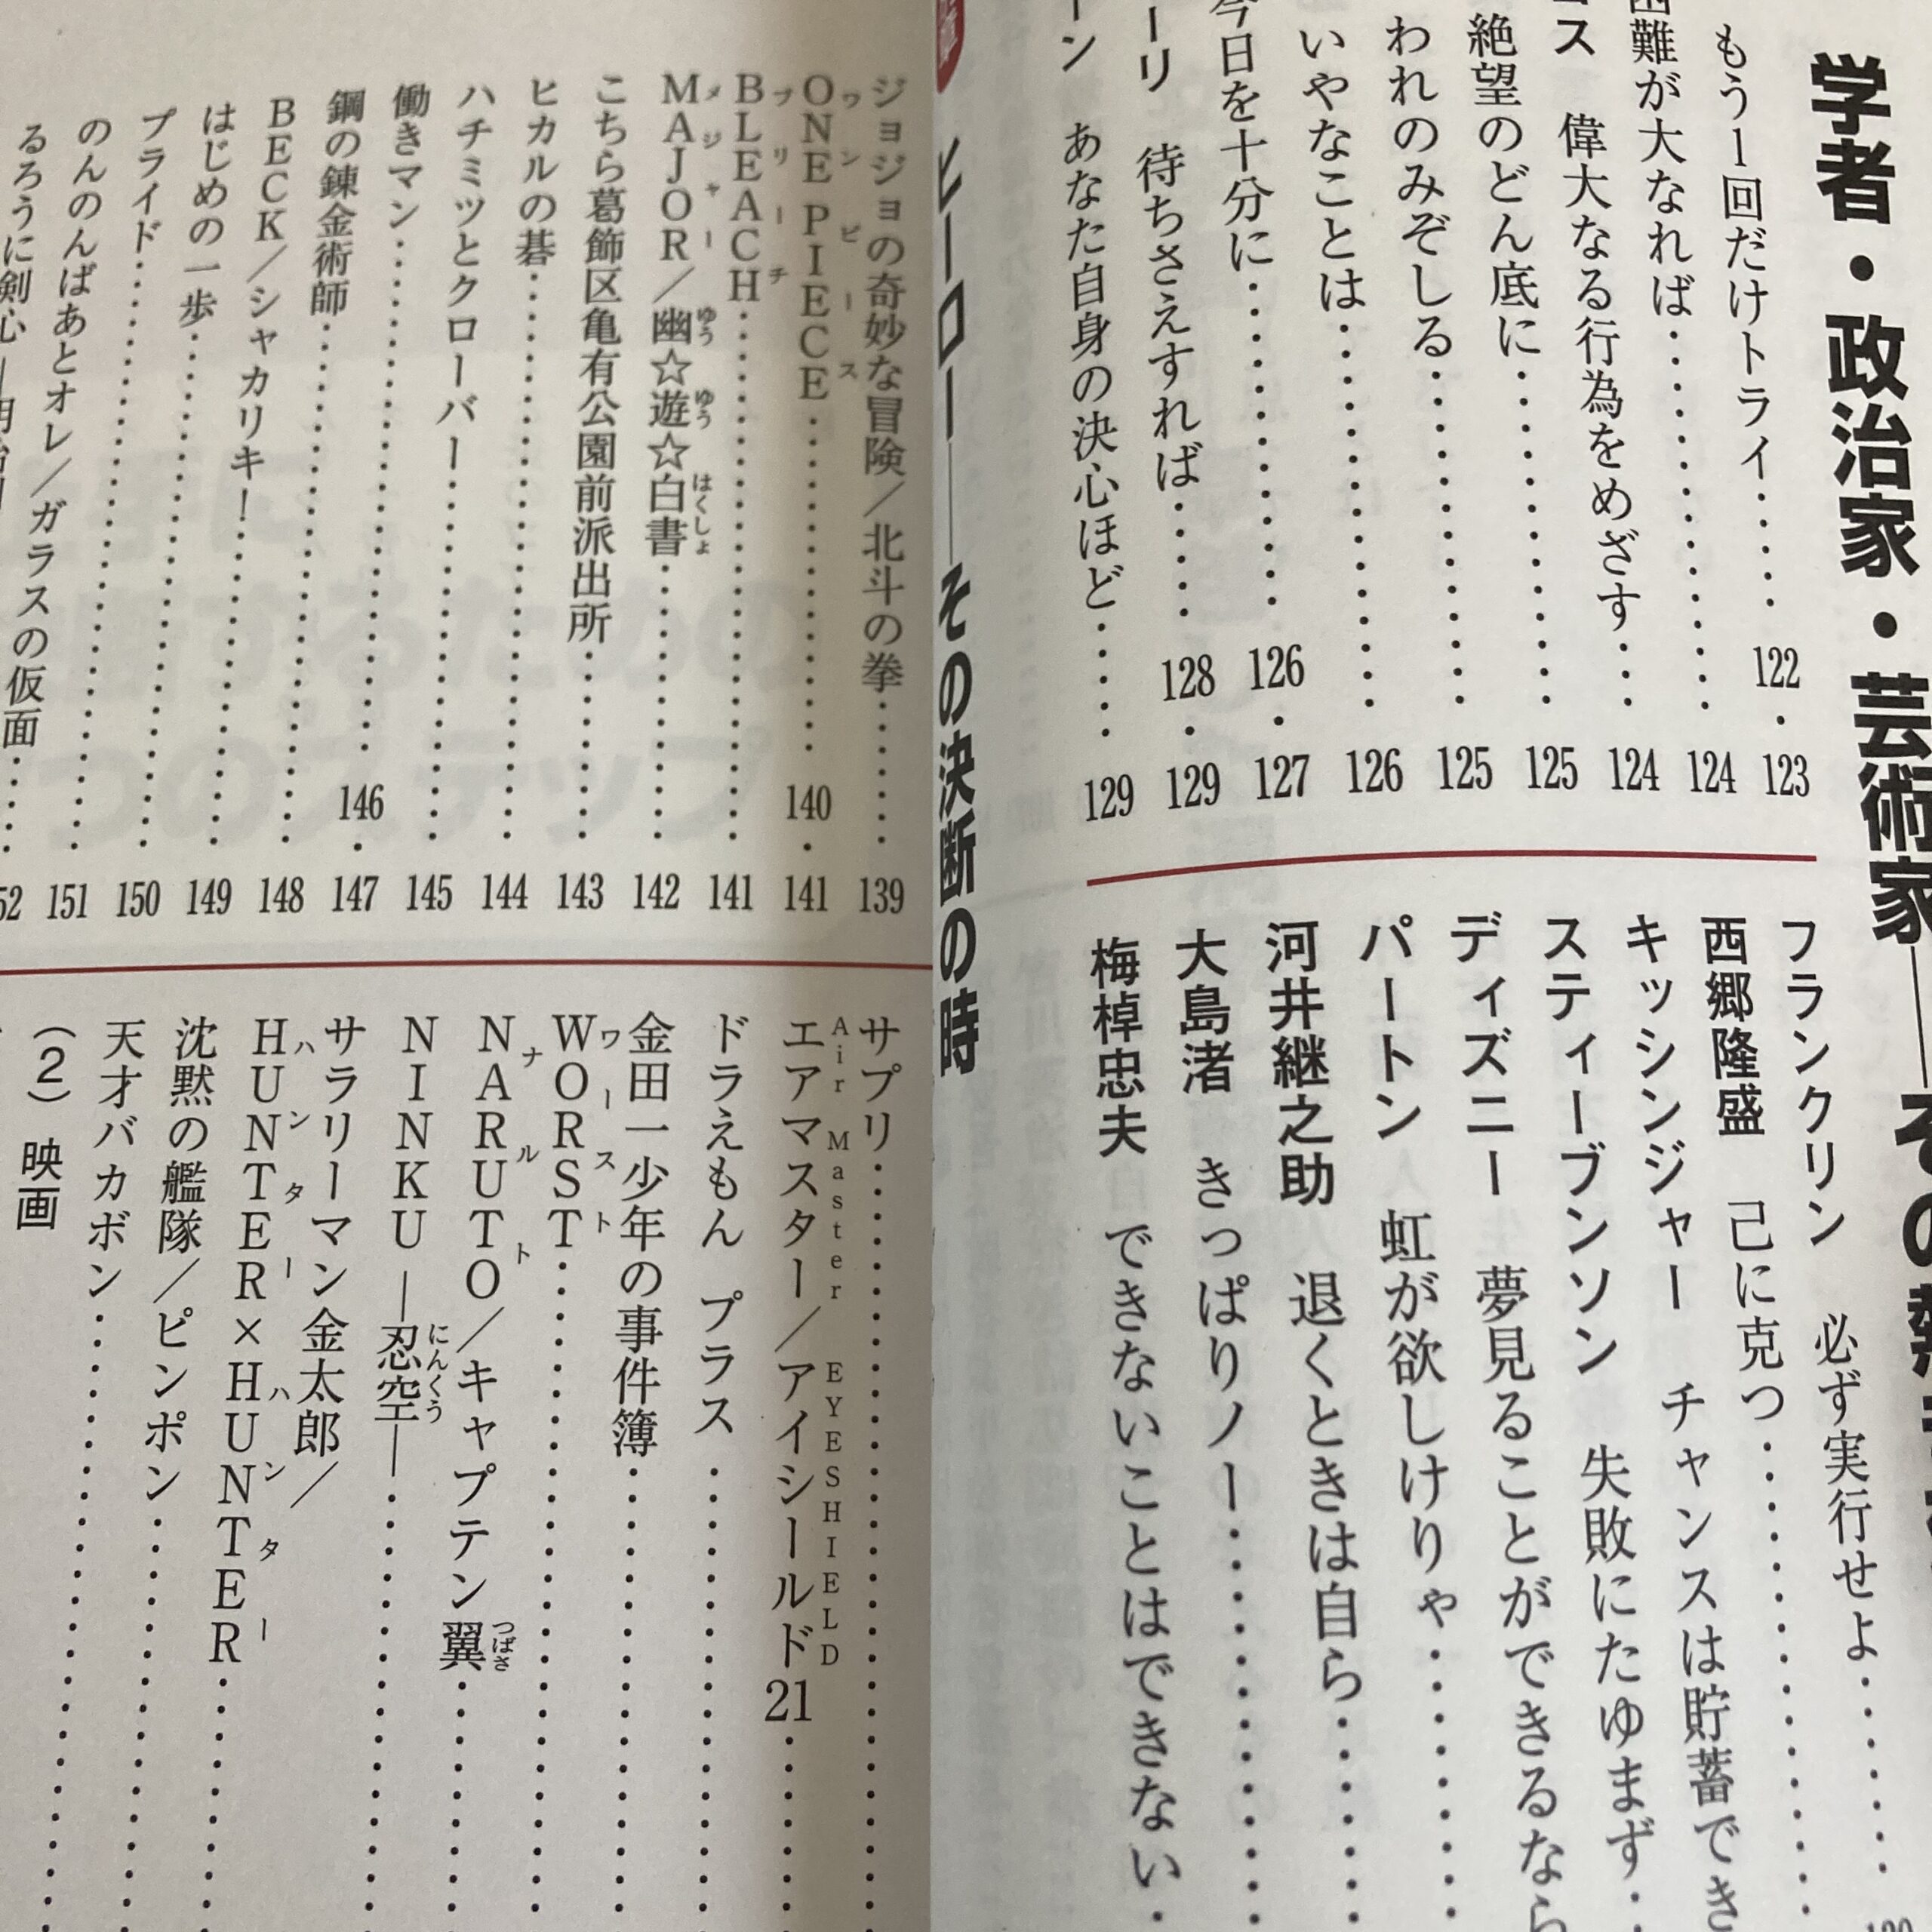 学者・政治家・芸術家――その
もう1回だけトライ………122・123
難が大なれば………124
ス 偉大なる行為をめざす………124
絶望のどん底に………125
われのみぞしる………125
いやなことは………126
今日を十分に………126・127
ーリ 待ちさえすれば………128・129
ーン あなた自身の決心ほど………129
フランクリン 必ず実行せよ………
西郷隆盛 己に克つ………
キッシンジャー チャンスは貯蓄でき
スティーブンソン 失敗にたゆまず………
ディズニー 夢見ることができるなら
パートン 虹が欲しけりゃ………
河井継之助 退くときは自ら………
大島渚 きっぱりノー………
梅棹忠夫 できないことはできない………
ヒーロー――その決断の時
ジョジョの奇妙な冒険／北斗の拳………139
ONE PIECE ワンピース………140・141
BLEACH ブリーチ………141
MAJOR メジャー／幽☆遊☆白書 ゆう ゆう はくしょ………142
こちら葛飾区亀有公園前派出所………143
ヒカルの碁………144
ハチミツとクローバー………145
働きマン………146・147
鋼の錬金術師………147
BECK／シャカリキ！………148
はじめの一歩………149
プライド………150
のんのんばあとオレ／ガラスの仮面………151
るろうに剣心
サプリ………
エアマスター Air Master／アイシールド21 EYESHIELD………
ドラえもん プラス………
金田一少年の事件簿………
WORST ワースト………
NARUTO ナルト／キャプテン翼 つばさ………
NINKU―忍空― にんくう………
サラリーマン金太郎／
HUNTER×HUNTER ハンター ハンター………
沈黙の艦隊／ピンポン………
天才バカボン………
（2）映画